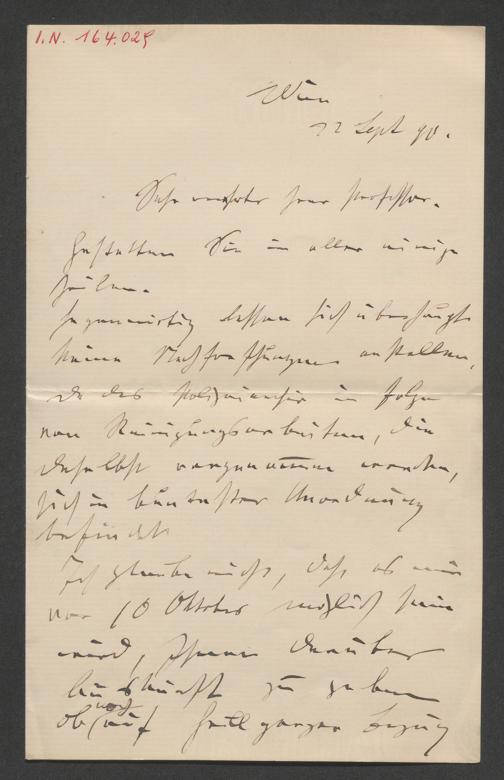 I.N. 164.029
Wien
22 Sept 90.
Sehr verehrter Herr Professor.
Gestatten Sie in aller einige
Zeilen.
Gegenwärtig lassen sich überhaupt
keine Nachforschungen anstellen,
da das Polizeiarchiv in Folge
von Reinigungsarbeiten, die
daselbst vorgenommen werden,
sich in buntester Unordnung
befindet
Ich glaube nicht, daß es mir
vor 10 Oktober möglich sein
wird, Ihnen darüber
Auskunft zu geben
ob noch auf Grillparzer Bezug